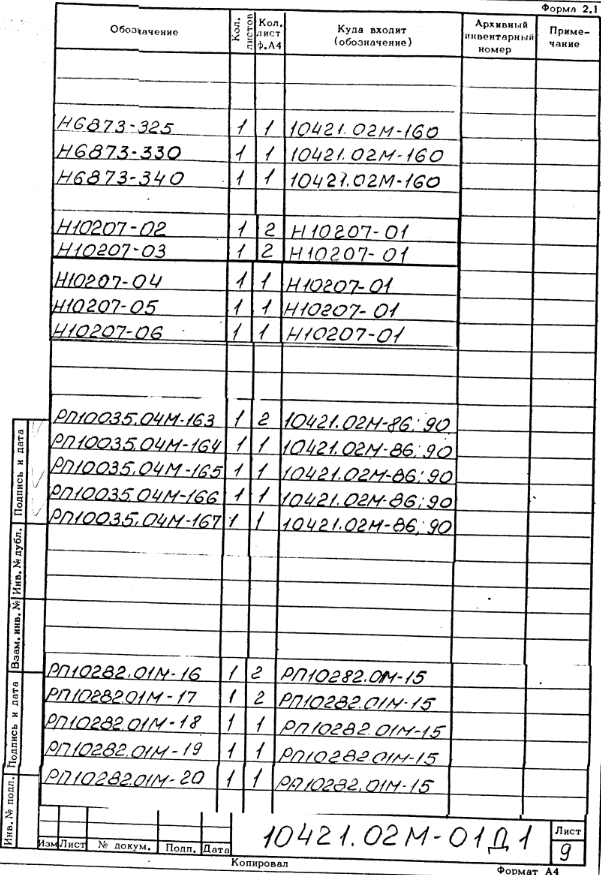 Форма 2.1
Обозначение Кол. листов Кол. лист ф.А4 Куда входит (обозначение) Архивный инвентарный номер Приме-чание
Н6873-325 1 1 10421.02М-160
Н6873-330 1 1 10421.02М-160
Н6873-340 1 1 10421.02М-160
Н10207-02 1 2 Н10207-01
Н10207-03 1 2 Н10207-01
Н10207-04 1 1 Н10207-01
Н10207-05 1 1 Н10207-01
Н10207-06 1 1 Н10207-01
РП10035.04М-163 1 2 10421.02М-86; 90
РП10035.04М-164 1 1 10421.02М-86; 90
РП10035.04М-165 1 1 10421.02М-86; 90
РП10035.04М-166 1 1 10421.02М-86; 90
РП10035.04М-167 1 1 10421.02М-86; 90
РП10282.01М-16 1 2 РП10282.01М-15
РП10282.01М-17 1 2 РП10282.01М-15
РП10282.01М-18 1 1 РП10282.01М-15
РП10282.01М-19 1 1 РП10282.01М-15
РП10282.01М-20 1 1 РП10282.01М-15
Подпись и дата
Инв. № дубл.
Взам. инв. №
Подпись и дата
Инв. № подл.
Изм Лист № докум. Подп. Дата
10421.02М-01Д1
Лист
9
Копировал
Формат А4